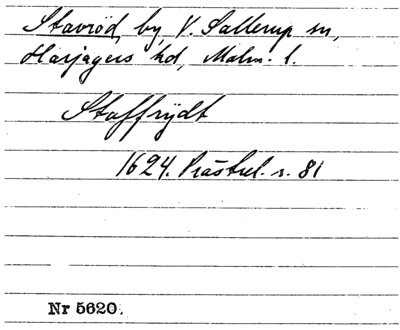 Stavröd, by, V. Sallerup sn,
Harjagers hd, Malm. l.
Staffrydt
1624. Prästrel. s. 81
Nr 5620.